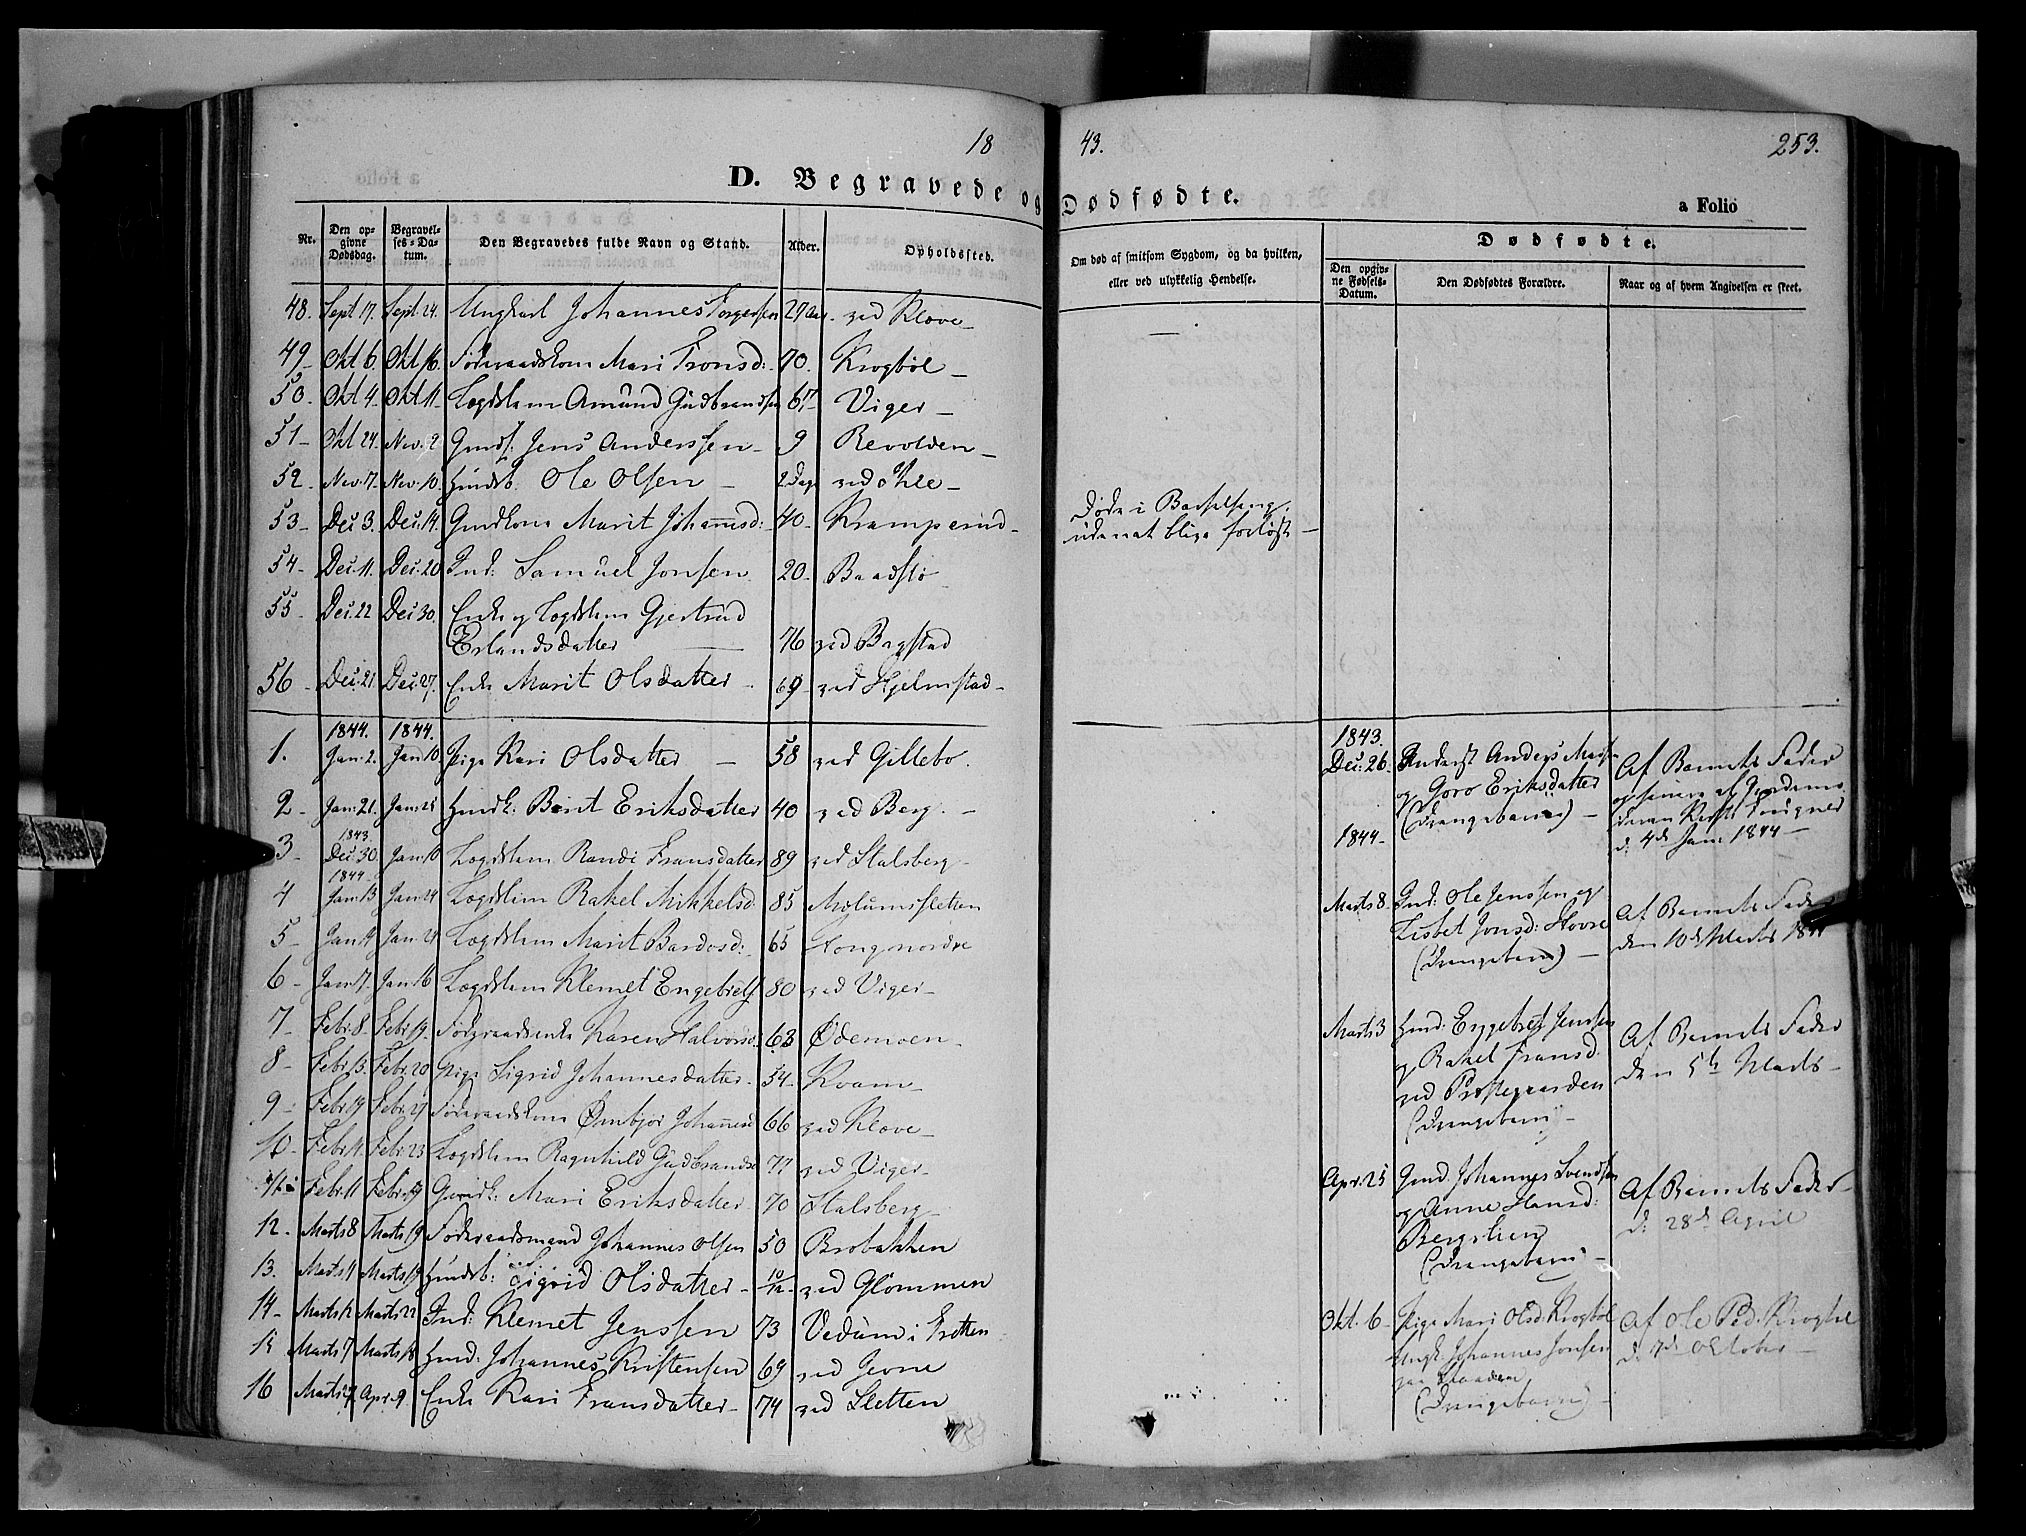 18 43. 253.
D. Begravede og Dødfødte. a Folio
Nr. Den opgivne Dødsdag. Begravelses-Datum. Den Begravedes fulde Navn og Stand. Alder. Opholdssted. Om død af smitsom Sygdom, og da hvilken, eller ved ulykkelig Hendelse. Dødfødte.
Den opgivne Fødsels-Datum. Den Dødfødtes Forældre. Naar og af hvem Angivelsen er skeet.
48. Sept 17. Sept. 24. Ungkarl Johannes Torgersen 29 Aar. ved Klæve
49- Okt 6. Okt 16. Føderaadskone Mari Tronsd: 70. Krogbøl
50. Okt 4. Okt 11. Lægdslem Amund Gudbrandsen 67 Viger
51- Okt 24. Nov. 9 Gmds: Jens Anderssen 9 Revolden
52. Nov. 17. Nov. 10. Huusb. Ole Olsen 2 Dage ved Øhle
53- Dec 3. Dec. 14. Gmdkone Marit Johannesd: 40- Kramperud Døde i Barselseng, uden at blive forløst
54- Dec. 11. Dec. 20 Ind: Samuel Jonsen 20- Baadstø
55- Dec. 22 Dec. 30. Enke og Lægdslem Gjertrud
Erlandsdatter 76 ved Bagstad
56- Dec. 21. Dec. 27. Enke Marit Olsdatter 69- ved Hjelmstad-
1844. 1844.
1. Jan. 2. Jan 10 Pige Kari Olsdatter 58 ved Gillebo.
2- Jan: 21. Jan: 28 Hmdk: Berit Eriksdatter 40 ved Berg.
1843
3- Dec. 30. Jan: 10 Lægdslem Randi Fransdatter 89 ved Stalsberg
1844-
4 Jan: 13 Jan: 24 Lægdslem Rakel Mikkelsd. 85 Molumsletten
5- Jan 14 Jan: 24 Lægdslem Marit Bardosd: 65 Hong nordre
6- Jan 7. Jan: 16 Lægdslem Klemet Engebrets 80 ved Viger-
7- Febr. 8- Febr. 19. Føderaadsenke Karen Halvorsd. 63 Ødemoen
8- Febr. 13. Febr. 20 Pige Sigrid Johannesdatter- 54- Kvam
9- Febr. 19 Febr. 27 Føderaadskone Ømbjør Johannesd 66 ved Klæve
10 Febr. 14. Febr. 23 Lægdslem Ragnhild Gudbrandsd 77 ved Viger-
11. Febr. 11 Febr. 19 Gmdk: Mari Eriksdatter 70 Stalsberg
12. Marts 8 Marts 19 Føderaadsmand Johannes Olsen 50 Brobakken
13. Marts 11 Marts 19 Huusb: Sigrid Olsdatter 10/12 ved Glommen
14- Marts 12 Marts 22 Ind: Klemet Jenssen 73 Vedum i Fretten
15 Marts 7 Marts 18 Hmd: Johannes Kristensen 69 ved Jevne
16 Marts 27 Apr. 9. Enke Kari Fransdatter 74 ved Sletten
1843.
Dec. 26- Anders Mas
og Goro Eriksdatter
(Drengebarn)
Af Barnets Fader
d: 4de Jan. 1844
1844-
Marts 8- Ind: Ole Jenssen og
Lisbet Jonsd: Hovre
(Drengebarn)
Af Barnets Fader
den 10de Marts 1844
Marts 3 Hmd: Engebret Jenssen
og Rakel Fransd.
ved Præstegaarden
(Drengebarn)
Af Barnets Fader
den 5te Marts
Apr. 25 Gmd Johannes Svendsen
og Anne Hansd:
Berglien
(Drengebarn)
Af Barnets Fader
d: 28de April
Okt. 6- Pige Mari Olsd: Krogbøl
Ungk. Johannes Jonsen
(Drengebarn)
Af Ole Ped. Krogbøl
d. 7de Oktober